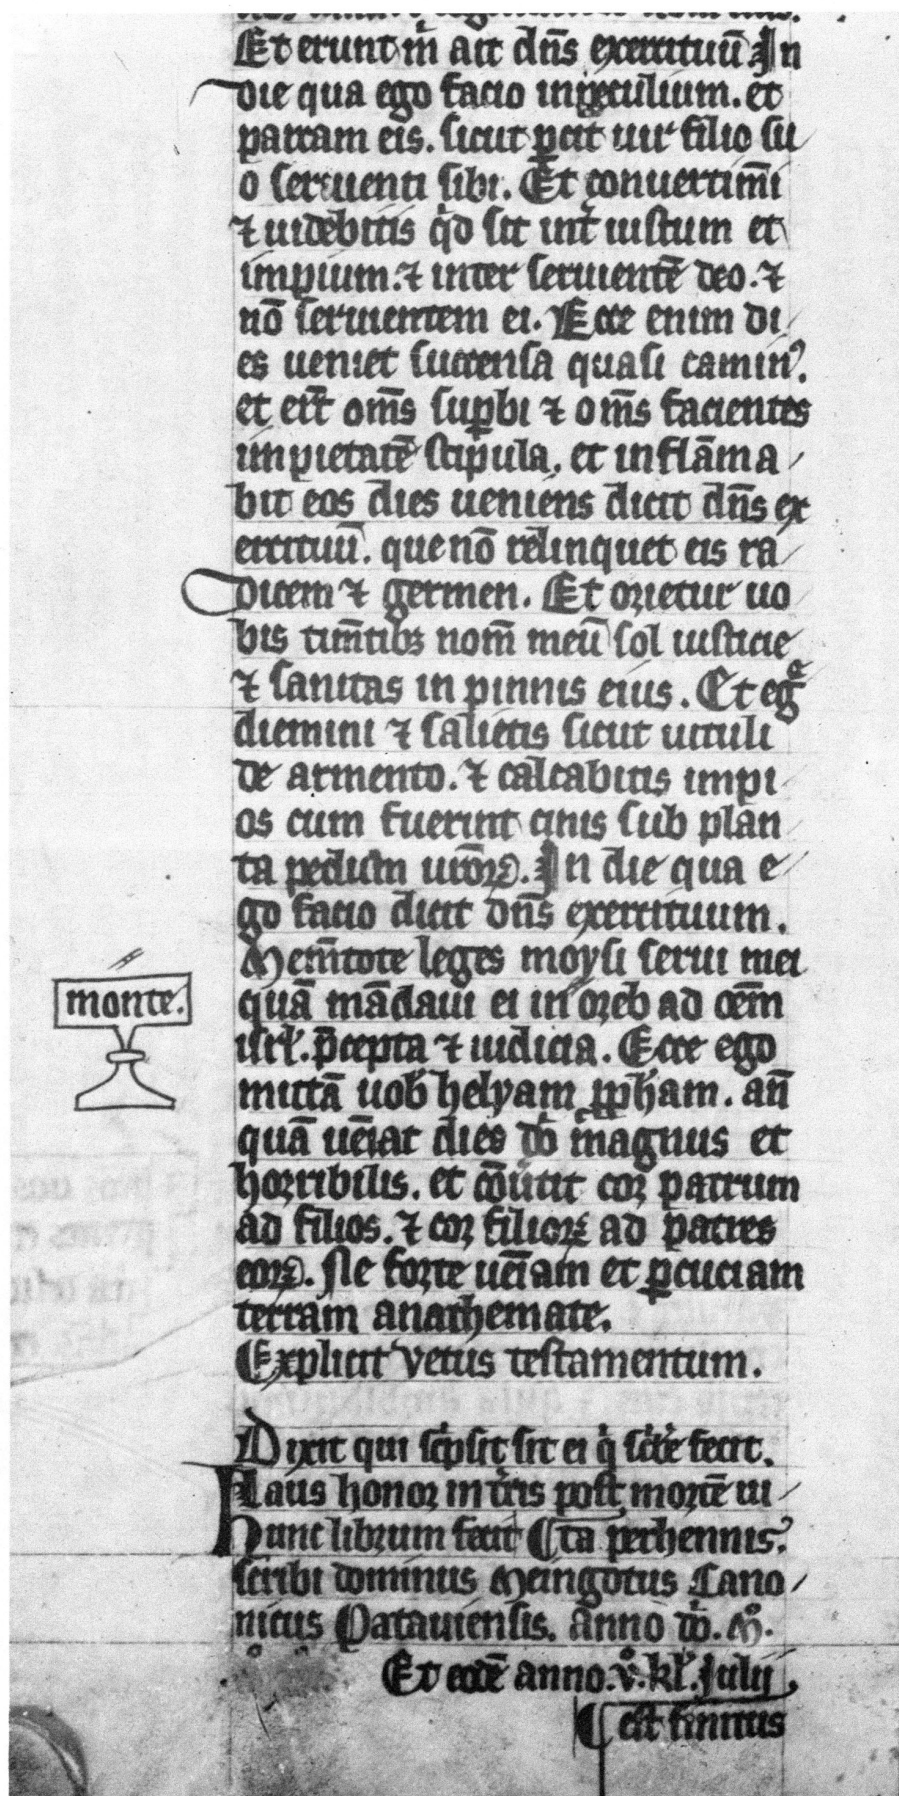 Et erunt m̄ ait dn̄s exercituū In
die qua ego facio in peculium. et
parcam eis. sicut ꝑcit uir filio su
o seruenti sibi. Et conuertimī
⁊ uidebitis qͥd sit int̄ iustum et
impium. ⁊ inter seruientē deo. ⁊
nō seruientem ei. Ecce enim di
es ueniet succensa quasi caminꝰ.
et er̄t om̄s suꝑbi ⁊ om̄s facientes
impietatē stipula. et inflāma
bit eos dies ueniens dicit dn̄s ex
ercituū. que nō relinquet eis ra
dicem ⁊ germen. Et orietur uo
bis tim̄tibꝫ nom̄ meū sol iusticie
⁊ sanitas in pinnis eius. Et egͤ
diemini ⁊ salietis sicut uituli
de armento. ⁊ calcabitis impi
os cum fuerint cinis sub plan
ta pedum ur̄oꝝ. In die qua e
go facio dicit dn̄s exercituum.
Mem̄tote leges moysi serui mei
quā mādaui ei in oreb ad oēm
isrl̄. p̄cepta ⁊ iudicia. Ecce ego
mittā uob̄ helyam ꝓph̄am. an̄
quā ueīat dies dͦi magnus et
horribilis. et cōūtit cor patrum
ad filios. ⁊ cor filioꝝ ad patres
eoꝝ. Ne forte ueīam et ꝑcuciam
terram anathemate.
Explicit vetus testamentum.
monte.
Dixit qui scͥpsit sit ei qͥ scͥbͤe fecit.
Laus honor in tͥris post mortē ui
hunc librum fecit ¶ ta perhennis.
scribi dominus Meingotus Cano
nicus Patauiensis. anno dͦi. Mͦ.
Et eodē anno. vͦ. kl̄. Julij
¶ est finitus